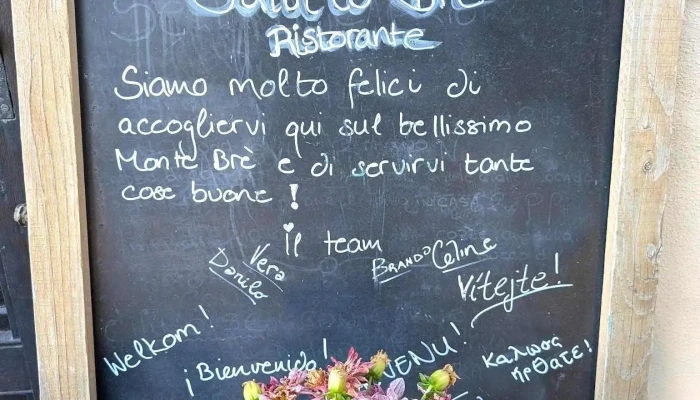 Ristorante
Siamo molto felici di
accogliervi qui sul bellissimo
Monte Brè e di servirvi tante
cose buone !
il team
Vera
Danilo
BRANDO Celine
Vítejte!
Welkom!
¡Bienvenido!
καλωσ
ήρθατε!